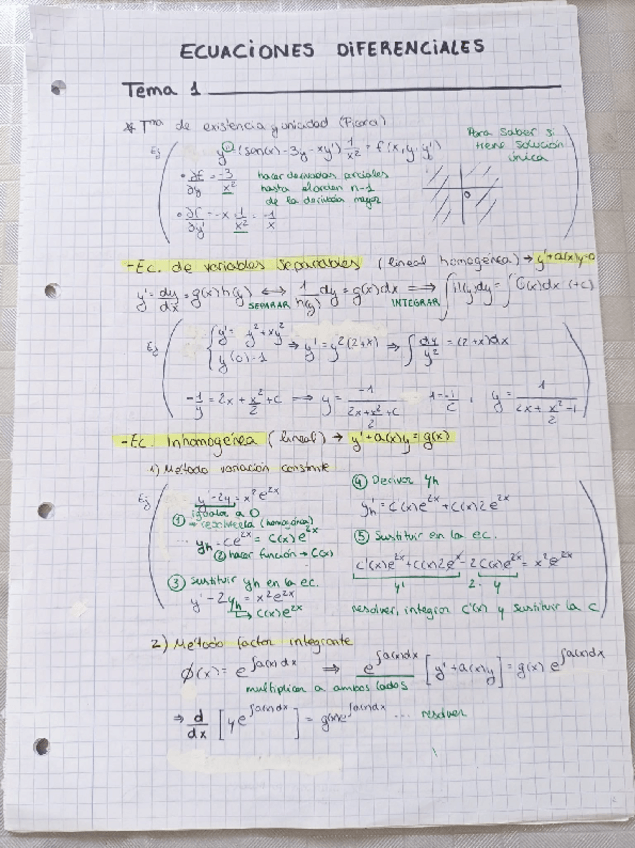 ECUACIONES DIFERENCIALES
Tema 1
* Tma de existencia y unicidad (Picard)
Para saber si
tiene solución
única
Ej
(sen(x) - 3y - xy') 1/x² = f(x, y, y')
• ∂f/∂y = -3/x² hacer derivadas parciales
hasta el orden n-1
de la derivada mayor
• ∂f/∂y' = -x 1/x² = -1/x
- Ec. de variables separables (lineal homogénea) → y' + a(x)y = 0
y' = dy/dx = g(x)h(y) ⟷ SEPARAR 1/h(y) dy = g(x)dx ⟹ INTEGRAR ∫H(y)dy = ∫G(x)dx (+C)
Ej { y' = y² + xy²
y(0) = 1 ⇒ y' = y²(2+x) ⇒ ∫ dy/y² = (2+x)dx
-1/y = 2x + x²/2 + C ⟹ y = -1/(2x + x²/2 + C) 1 = -1/C , y = 1/(2x + x²/2 - 1)
- Ec. Inhomogénea (lineal) → y' + a(x)y = g(x)
1) Método variación constante
Ej y' - 2y = x² e^2x
① igualar a 0
→ resolverla (homogénea)
... yh = C e^2x = C(x) e^2x
② hacer función → C(x)
③ sustituir yh en la ec.
y' - 2yh = x² e^2x
↳ C(x) e^2x
④ Derivar yh
yh' = C'(x) e^2x + C(x) 2 e^2x
⑤ Sustituir en la ec.
C'(x) e^2x + C(x) 2 e^x - 2 C(x) e^2x = x² e^2x
y' 2 · y
resolver, integrar C'(x) y sustituir la C
2) Método factor integrante
φ(x) = e^∫a(x)dx ⟹ e^∫a(x)dx [y' + a(x)y] = g(x) e^∫a(x)dx
multiplicar a ambos lados
⇒ d/dx [y e^∫a(x)dx] = g(x) e^∫a(x)dx ... resolver